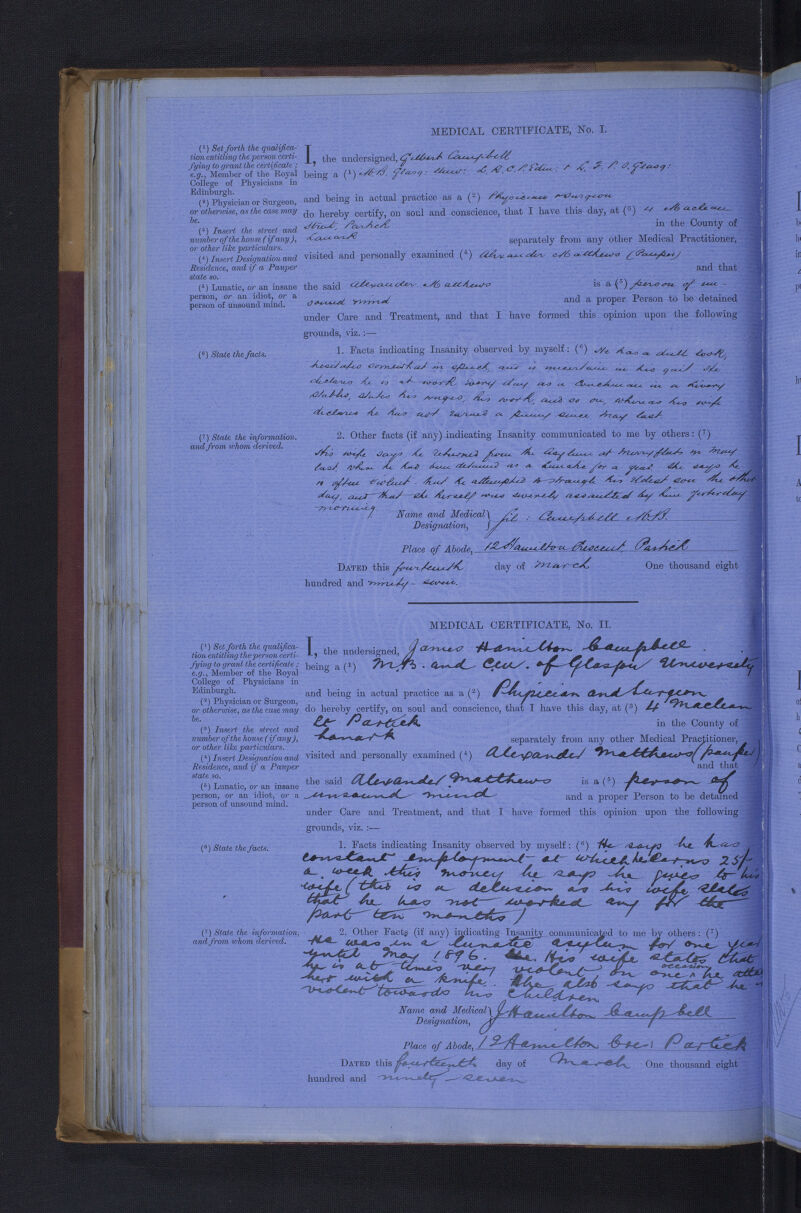 MEDICAL CERTIFICATE, No. I.
(¹) Set forth the qualifica-
tion entitling the person certi-
fying to grant the certificate;
e.g., Member of the Royal
College of Physicians in
Edinburgh.
(²) Physician or Surgeon,
or otherwise, as the case may
be.
(³) Insert the street and
number of the house (if any),
or other like particulars.
(⁴) Insert Designation and
Residence, and if a Pauper
state so.
(⁵) Lunatic, or an insane
person, or an idiot, or a
person of unsound mind.
I, the undersigned, Gilbert Campbell
being a (¹) M.B. Glasg: Univ: L.R.C.P. Edin: & L.F.P.S. Glasg:
and being in actual practice as a (²) Physician & Surgeon
do hereby certify, on soul and conscience, that I have this day, at (³) 4 Maclean
Street, Partick in the County of
Lanark separately from any other Medical Practitioner,
visited and personally examined (⁴) Alexander Matthews (Pauper)
and that
the said Alexander Matthews is a (⁵) person of un-
sound mind and a proper Person to be detained
under Care and Treatment, and that I have formed this opinion upon the following
grounds, viz.:—
(⁶) State the facts.
1. Facts indicating Insanity observed by myself: (⁶) He has a dull look,
hesitates somewhat in speech, and is uncertain in his gait. He
declares he is at work every day as a Coachman in a livery
stables, states his wages, his work, and so on, whereas his wife
declares he has not earned a penny since May last.
(⁷) State the information,
and from whom derived.
2. Other facts (if any) indicating Insanity communicated to me by others: (⁷)
His wife says he returned from the Asylum at Merryflats in May
last when he had been detained as a lunatic for a year. She says he
is often violent. that he attempted to strangle his eldest son the other
day, and that she herself was severely assaulted by him yesterday
morning.
Name and Medical Designation, Gil: Campbell M.B.
Place of Abode, 12 Hamilton Crescent, Partick
DATED this fourteenth day of March One thousand eight
hundred and ninety-seven.
MEDICAL CERTIFICATE, No. II.
(¹) Set forth the qualifica-
tion entitling the person certi-
fying to grant the certificate;
e.g., Member of the Royal
College of Physicians in
Edinburgh.
(²) Physician or Surgeon,
or otherwise, as the case may
be.
(³) Insert the street and
number of the house (if any),
or other like particulars.
(⁴) Insert Designation and
Residence, and if a Pauper
state so.
(⁵) Lunatic, or an insane
person, or an idiot, or a
person of unsound mind.
I, the undersigned, James Hamilton Campbell
being a (¹) M.B. and C.M. of Glasgow University
and being in actual practice as a (²) Physician and Surgeon
do hereby certify, on soul and conscience, that I have this day, at (³) 4 Maclean
St Partick in the County of
Lanark separately from any other Medical Practitioner,
visited and personally examined (⁴) Alexander Matthews (pauper)
and that
the said Alexander Matthews is a (⁵) person of
unsound mind and a proper Person to be detained
under Care and Treatment, and that I have formed this opinion upon the following
grounds, viz.:—
(⁶) State the facts.
1. Facts indicating Insanity observed by myself: (⁶) He says he has
constant employment at which he earns 25/-
a week this money he says he gives to his
wife (this is a delusion as his wife states
that he has not worked any for the
past ten months)
(⁷) State the information,
and from whom derived.
2. Other Facts (if any) indicating Insanity communicated to me by others: (⁷)
He was in a lunatic asylum for one year
until May 1896. His wife states that
he is at times very violent on one occasion he
her with a knife. She also says that he is
violent towards his children
Name and Medical Designation, J Hamilton Campbell
Place of Abode, 12 Hamilton Cres: Partick
DATED this fourteenth day of March One thousand eight
hundred and ninety-seven